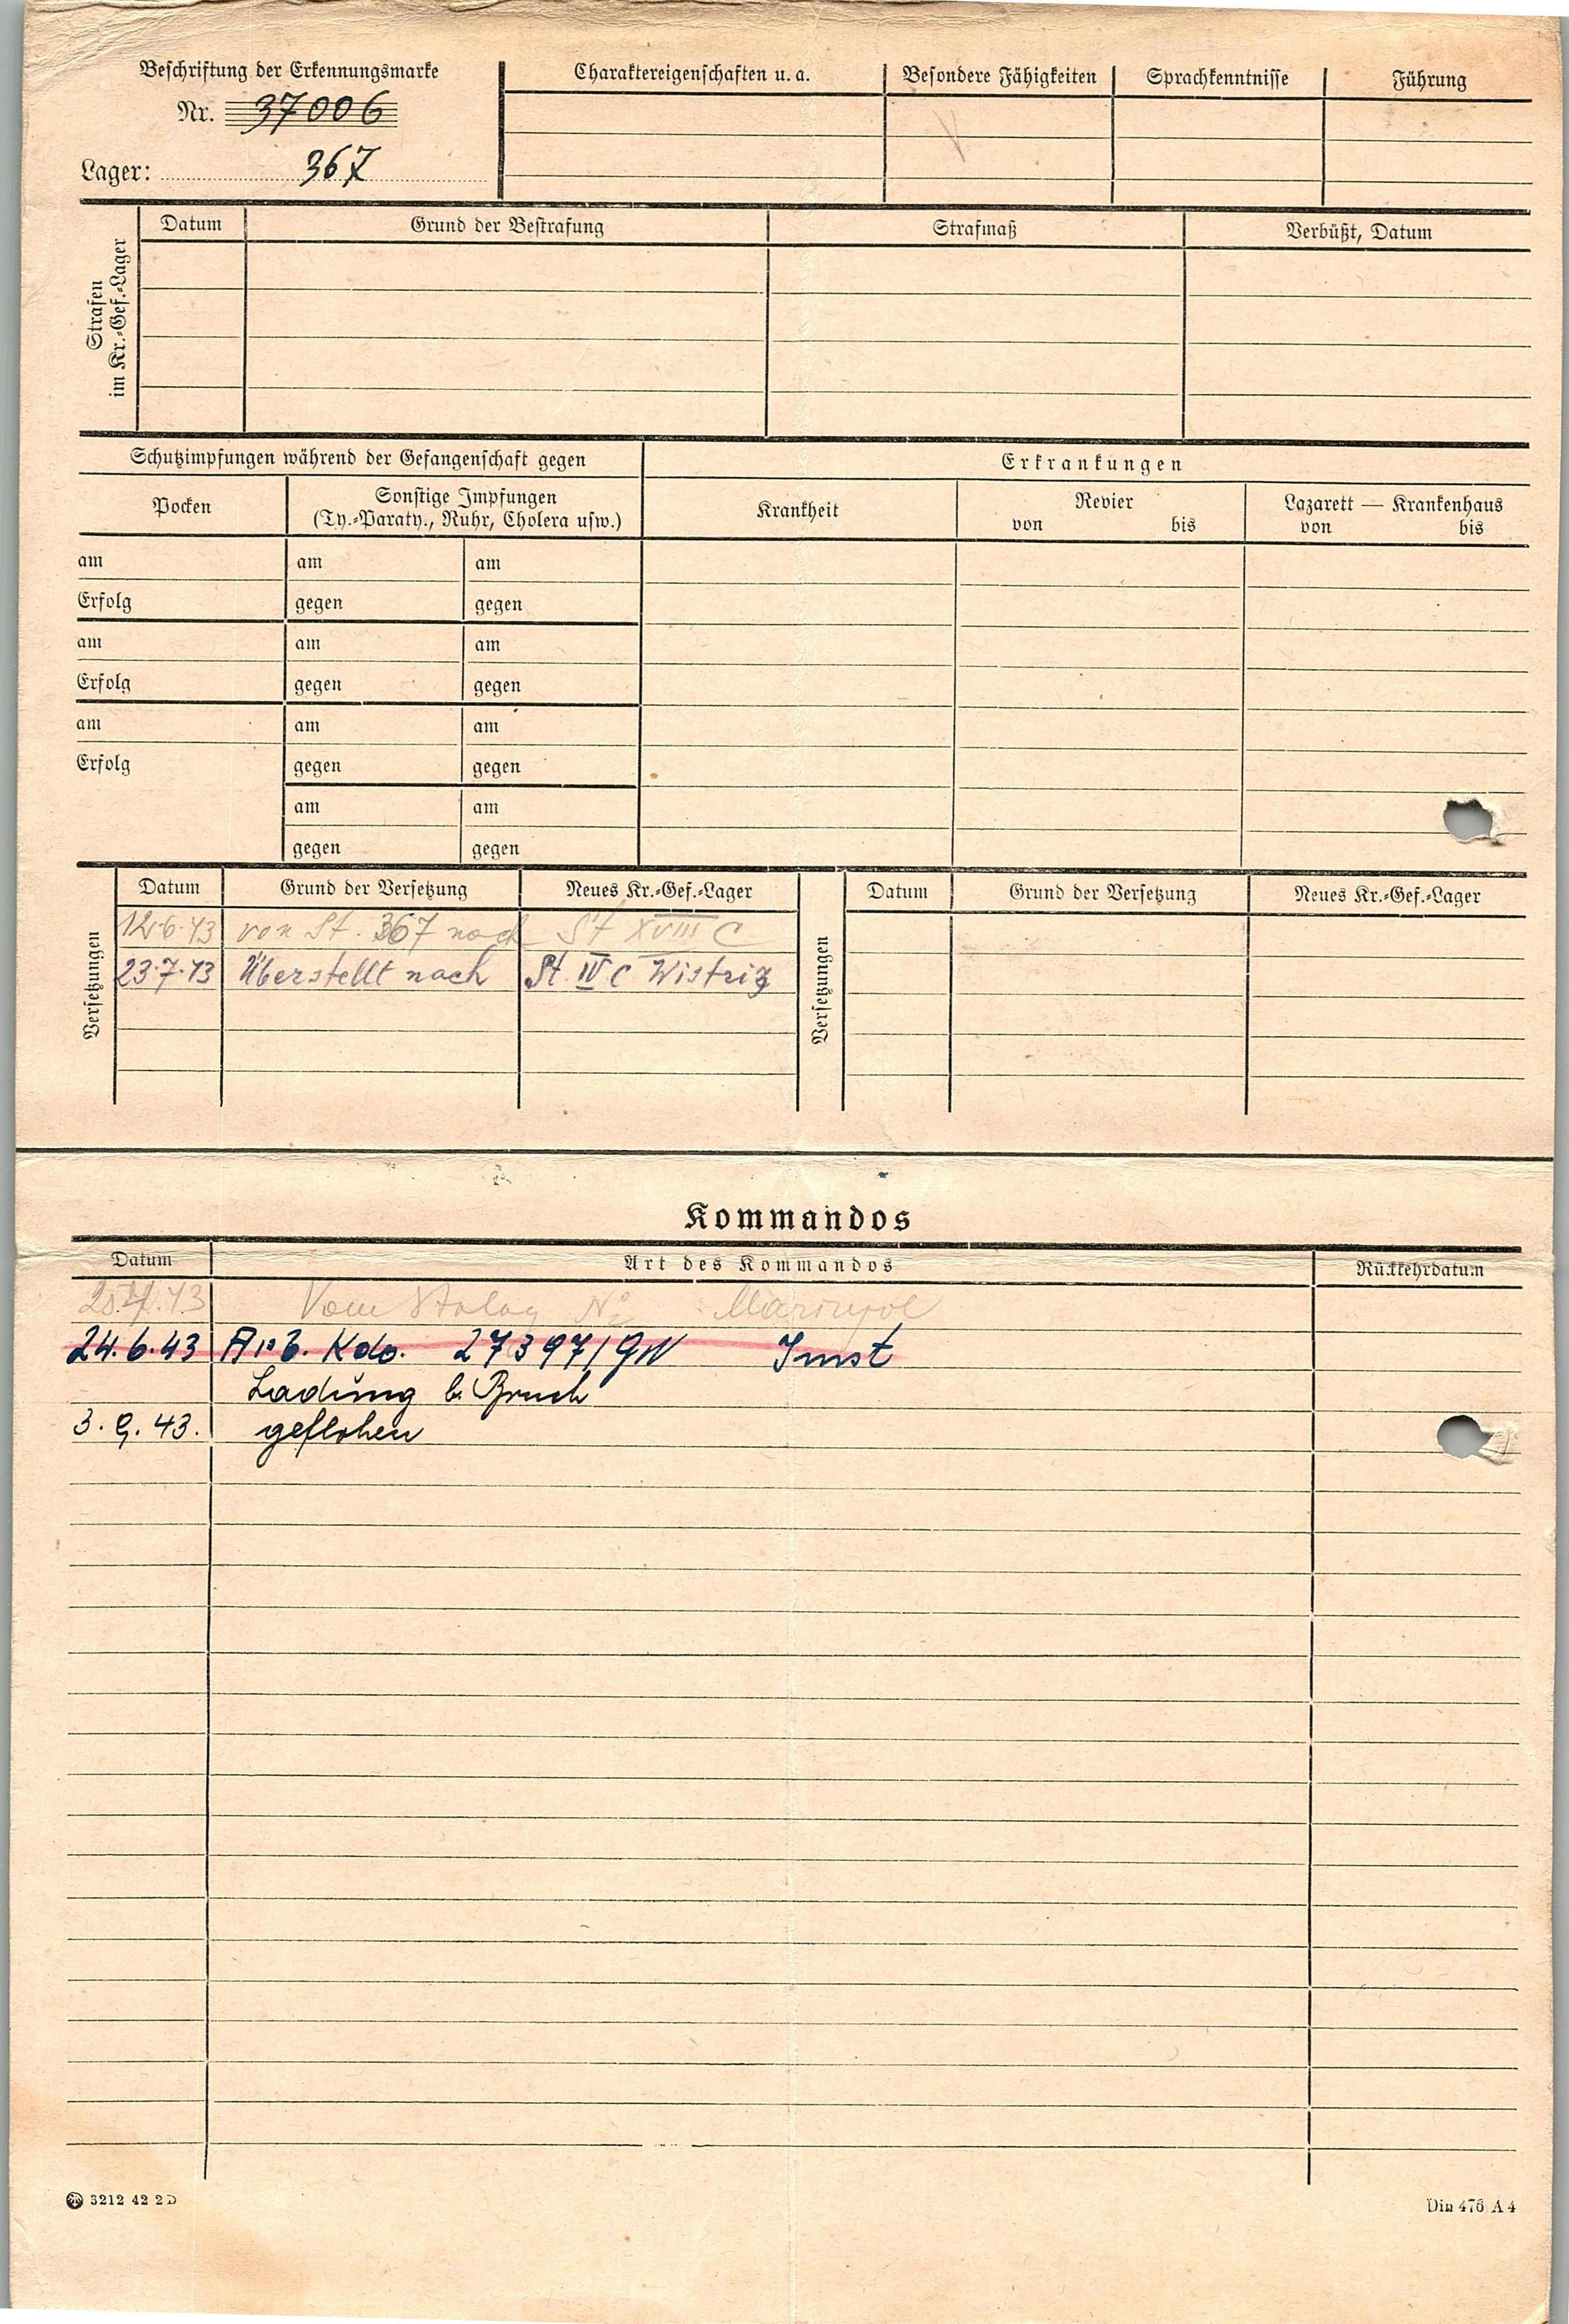 Beschriftung der Erkennungsmarke
Nr. 37006
Lager: 367
Charaktereigenschaften u. a.
Besondere Fähigkeiten
Sprachkenntnisse
Führung
Strafen
im Kr.-Gef.-Lager
Datum
Grund der Bestrafung
Strafmaß
Verbüßt, Datum
Schutzimpfungen während der Gefangenschaft gegen
Erkrankungen
Pocken
Sonstige Impfungen
(Ty.-Paraty., Ruhr, Cholera usw.)
Krankheit
Revier
von bis
Lazarett — Krankenhaus
von bis
am am am
Erfolg gegen gegen
am am am
Erfolg gegen gegen
am am am
Erfolg gegen gegen
am am
gegen gegen
Versetzungen
Datum Grund der Versetzung Neues Kr.-Gef.-Lager
12.6.43 von St. 367 nach St XVIII C
23.7.43 Überstellt nach St. IV C Wistriz
Versetzungen
Datum Grund der Versetzung Neues Kr.-Gef.-Lager
Kommandos
Datum Art des Kommandos Rückkehrdatum
Vom Stalag No
24.6.43 Arb. Kdo. 27397/GW Imst
Ladung b. Bruch
3. 9. 43. geflohen
3212 42 2D
Din 476 A 4